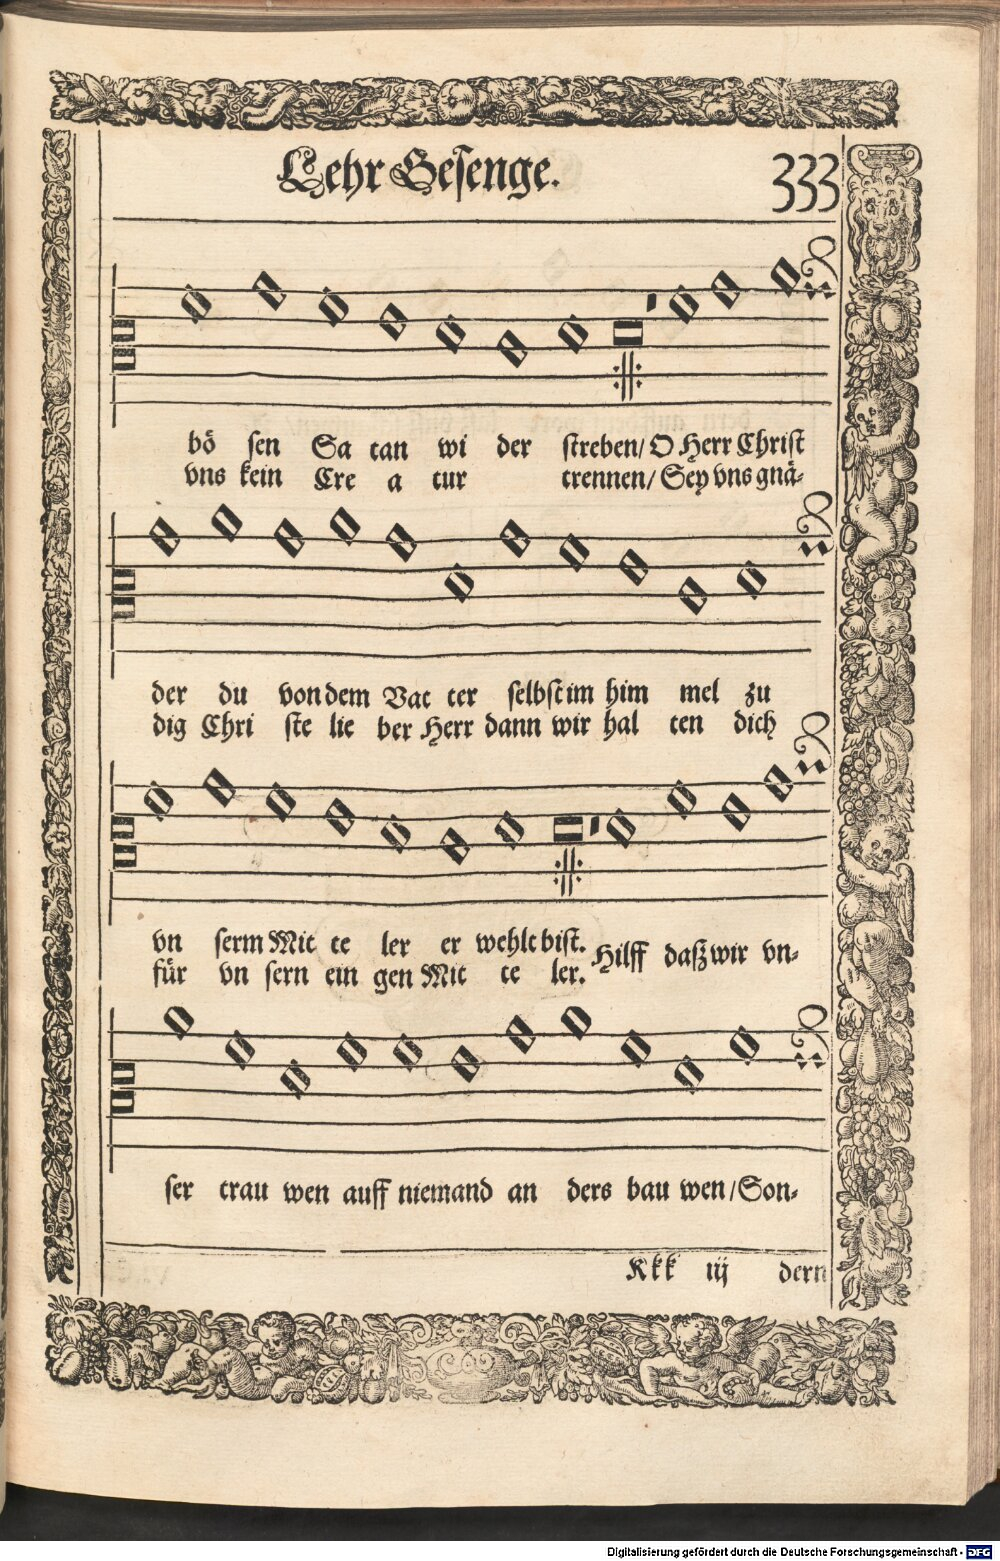 Lehr Gesenge. 333
bö sen Sa tan wi der streben/ O Herr Christ
vns kein Cre a tur trennen/ Sey vns gnä-
der du von dem Vat ter selbst im him mel zu
dig Chri ste lie ber Herr dann wir hal ten dich
vn serm Mit te ler er wehlt bist. Hilff daß wir vn-
für vn sern ein gen Mit te ler.
ser trau wen auff niemand an ders bau wen/ Son-
Kkk iij dern
Digitalisierung gefördert durch die Deutsche Forschungsgemeinschaft - DFG